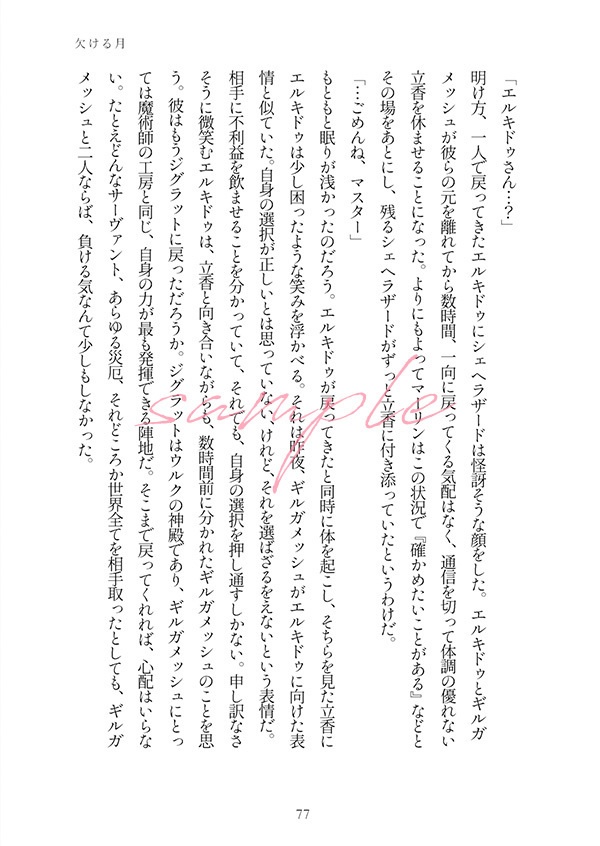 欠ける月
「エルキドゥさん…?」
明け方、一人で戻ってきたエルキドゥにシェヘラザードは怪訝そうな顔をした。エルキドゥとギルガ
メッシュが彼らの元を離れてから数時間、一向に戻ってくる気配はなく、通信を切って体調の優れない
立香を休ませることになった。よりにもよってマーリンはこの状況で『確かめたいことがある』などと
その場をあとにし、残るシェヘラザードがずっと立香に付き添っていたというわけだ。
「…ごめんね、マスター」
もともと眠りが浅かったのだろう。エルキドゥが戻ってきたと同時に体を起こし、そちらを見た立香に
エルキドゥは少し困ったような笑みを浮かべる。それは昨夜、ギルガメッシュがエルキドゥに向けた表
情と似ていた。自身の選択が正しいとは思っていない、けれど、それを選ばざるをえないという表情だ。
相手に不利益を飲ませることを分かっていて、それでも、自身の選択を押し通すしかない。申し訳なさ
そうに微笑むエルキドゥは、立香と向き合いながらも、数時間前に分かれたギルガメッシュのことを思
う。彼はもうジグラットに戻っただろうか。ジグラットはウルクの神殿であり、ギルガメッシュにとっ
ては魔術師の工房と同じ、自身の力が最も発揮できる陣地だ。そこまで戻ってくれれば、心配はいらな
い。たとえどんなサーヴァント、あらゆる災厄、それどころか世界全てを相手取ったとしても、ギルガ
メッシュと二人ならば、負ける気なんて少しもしなかった。
sample
77